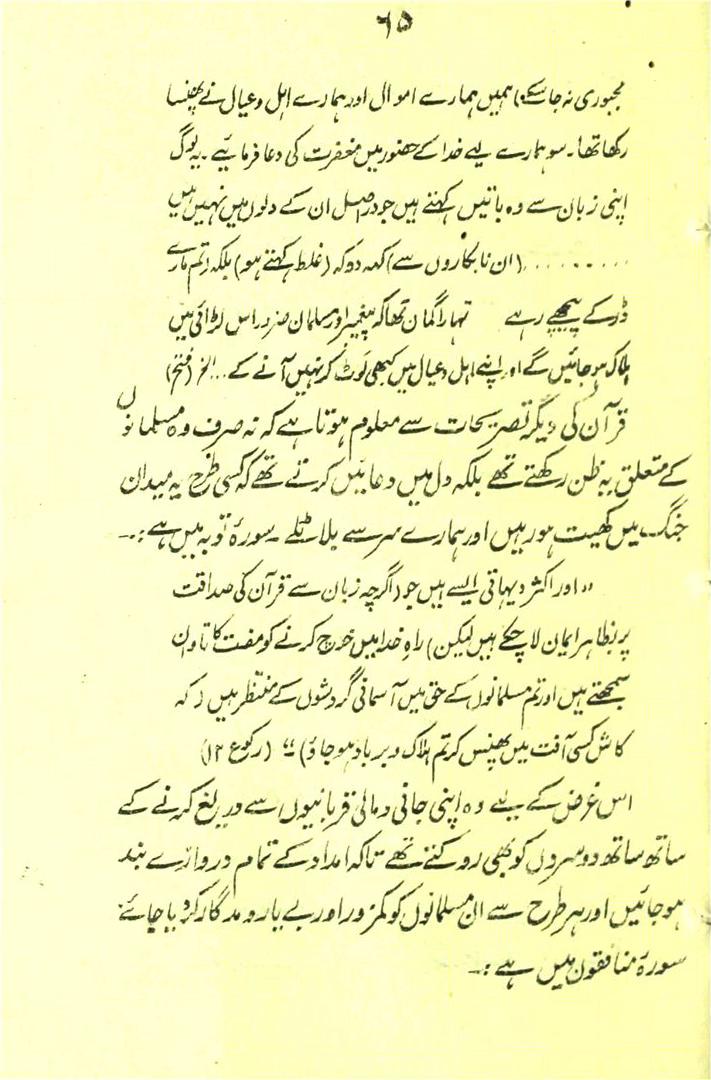 ۶۵
مجبوری نہ جا سکے) ہمیں ہمارے اموال اور ہمارے اہل و عیال نے پھنسا
رکھا تھا۔ سو ہمارے لیے خدا کے حضور میں مغفرت کی دعا فرمائیے۔ یہ لوگ
اپنی زبان سے وہ باتیں کہتے ہیں جو دراصل ان کے دلوں میں نہیں ہیں
......... (ان نابکاروں سے) کہہ دو کہ (غلط کہتے ہو) بلکہ (تم مارے
ڈر کے پیچھے رہے تمہارا گمان تھا کہ پیغمبر اور مسلمان ضرور اس لڑائی میں
ہلاک ہو جائیں گے اور اپنے اہل و عیال میں کبھی لوٹ کر نہیں آنے کے... الخ (فتح)
قرآن کی دیگر تصریحات سے معلوم ہوتا ہے کہ نہ صرف وہ مسلمانوں
کے متعلق یہ ظن رکھتے تھے بلکہ دل میں دعائیں کرتے تھے کہ کسی طرح یہ میدان
جنگ میں کھیت ہو رہیں اور ہمارے سر سے بلا ٹلے۔ سورۂ توبہ میں ہے :۔
"اور اکثر دیہاتی ایسے ہیں جو (اگرچہ زبان سے قرآن کی صداقت
پر بظاہر ایمان لا چکے ہیں لیکن) راہِ خدا میں خرچ کرنے کو مفت کا تاوان
سمجھتے ہیں اور تم مسلمانوں کے حق میں آسمانی گردشوں کے منتظر ہیں (کہ
کاش کسی آفت میں پھنس کر تم ہلاک و برباد ہو جاؤ)" (رکوع ۱۲)
اس غرض کے لیے وہ اپنی جانی و مالی قربانیوں سے دریغ کرنے کے
ساتھ ساتھ دوسروں کو بھی روکتے تھے تاکہ امداد کے تمام دروازے بند
ہو جائیں اور ہر طرح سے ان مسلمانوں کو کمزور اور بے یار و مددگار کر دیا جائے۔
سورۂ منافقون میں ہے :۔